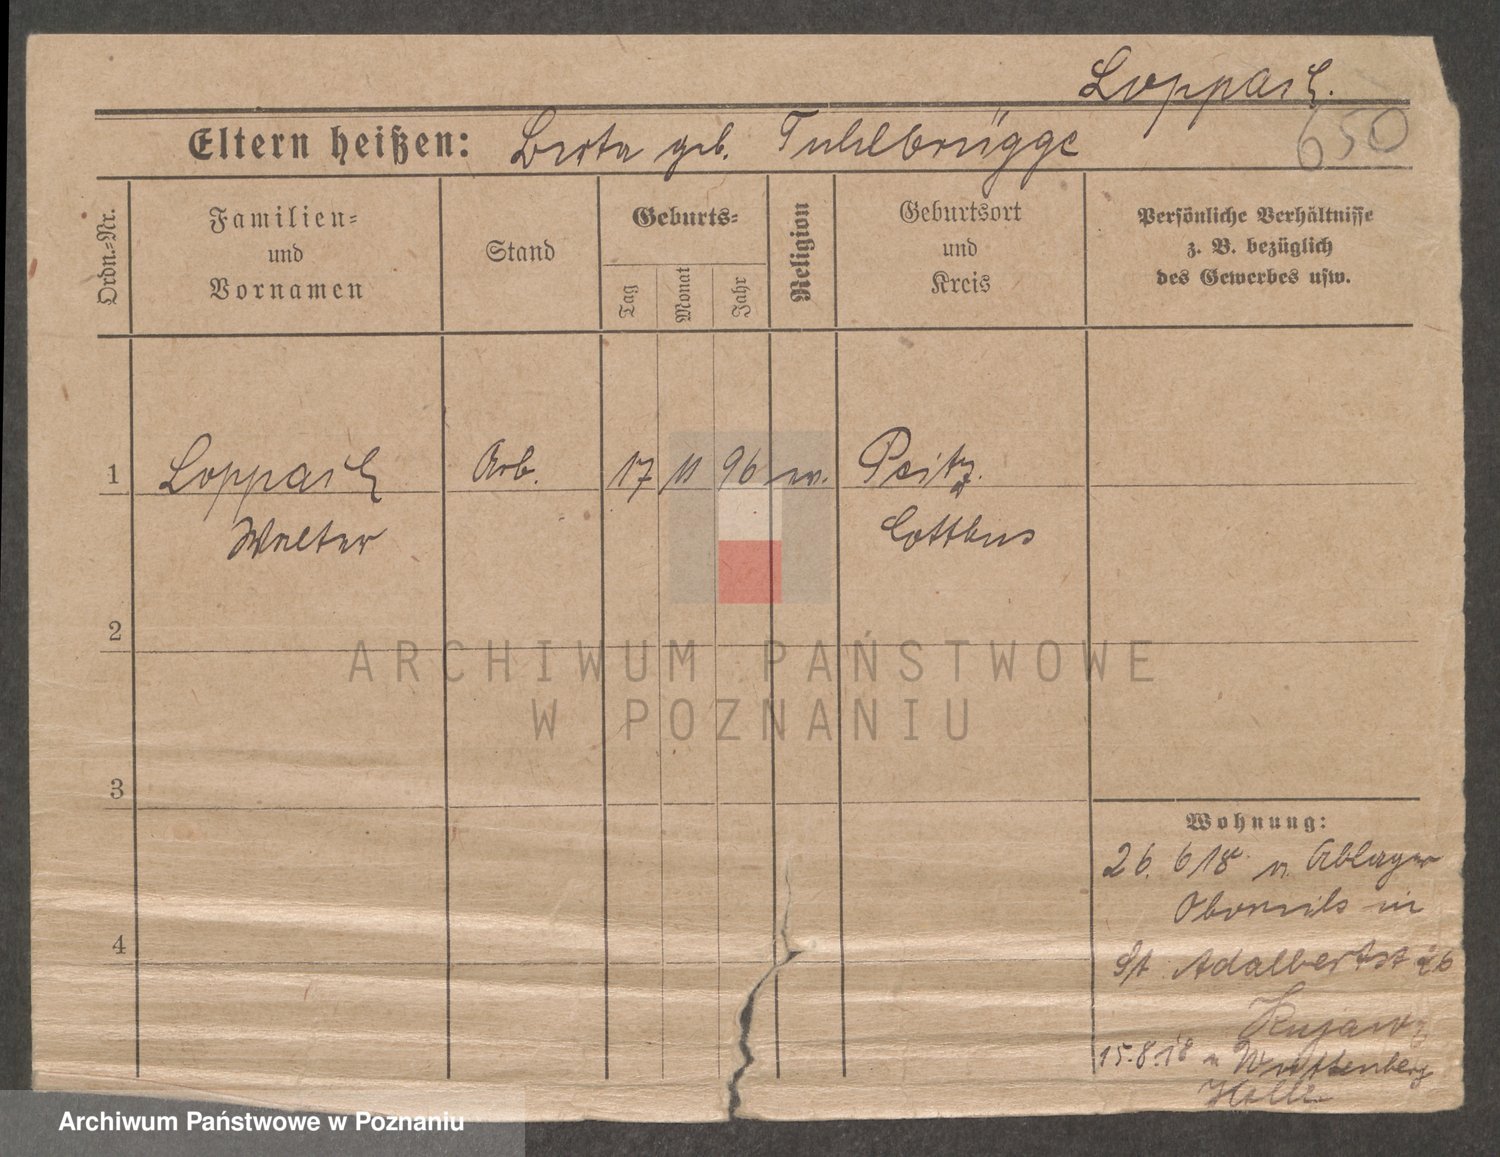 Loppasch.
650
Eltern heißen: Berta geb. Tuhlbrügge
Ordn.-Nr.
Familien-
und
Vornamen
Stand
Geburts-
Tag
Monat
Jahr
Religion
Geburtsort
und
Kreis
Persönliche Verhältnisse
z. B. bezüglich
des Gewerbes usw.
1 Loppasch Arb. 17 11 96 ev. Peitz.
Walter Cottbus
2
3
4
Wohnung:
26. 6 18 n. Ablager
in
St. Adalbertst 26
Kujaw
15.8.18 n Wittenberg
Halle
ARCHIWUM PAŃSTWOWE
W POZNANIU
Archiwum Państwowe w Poznaniu